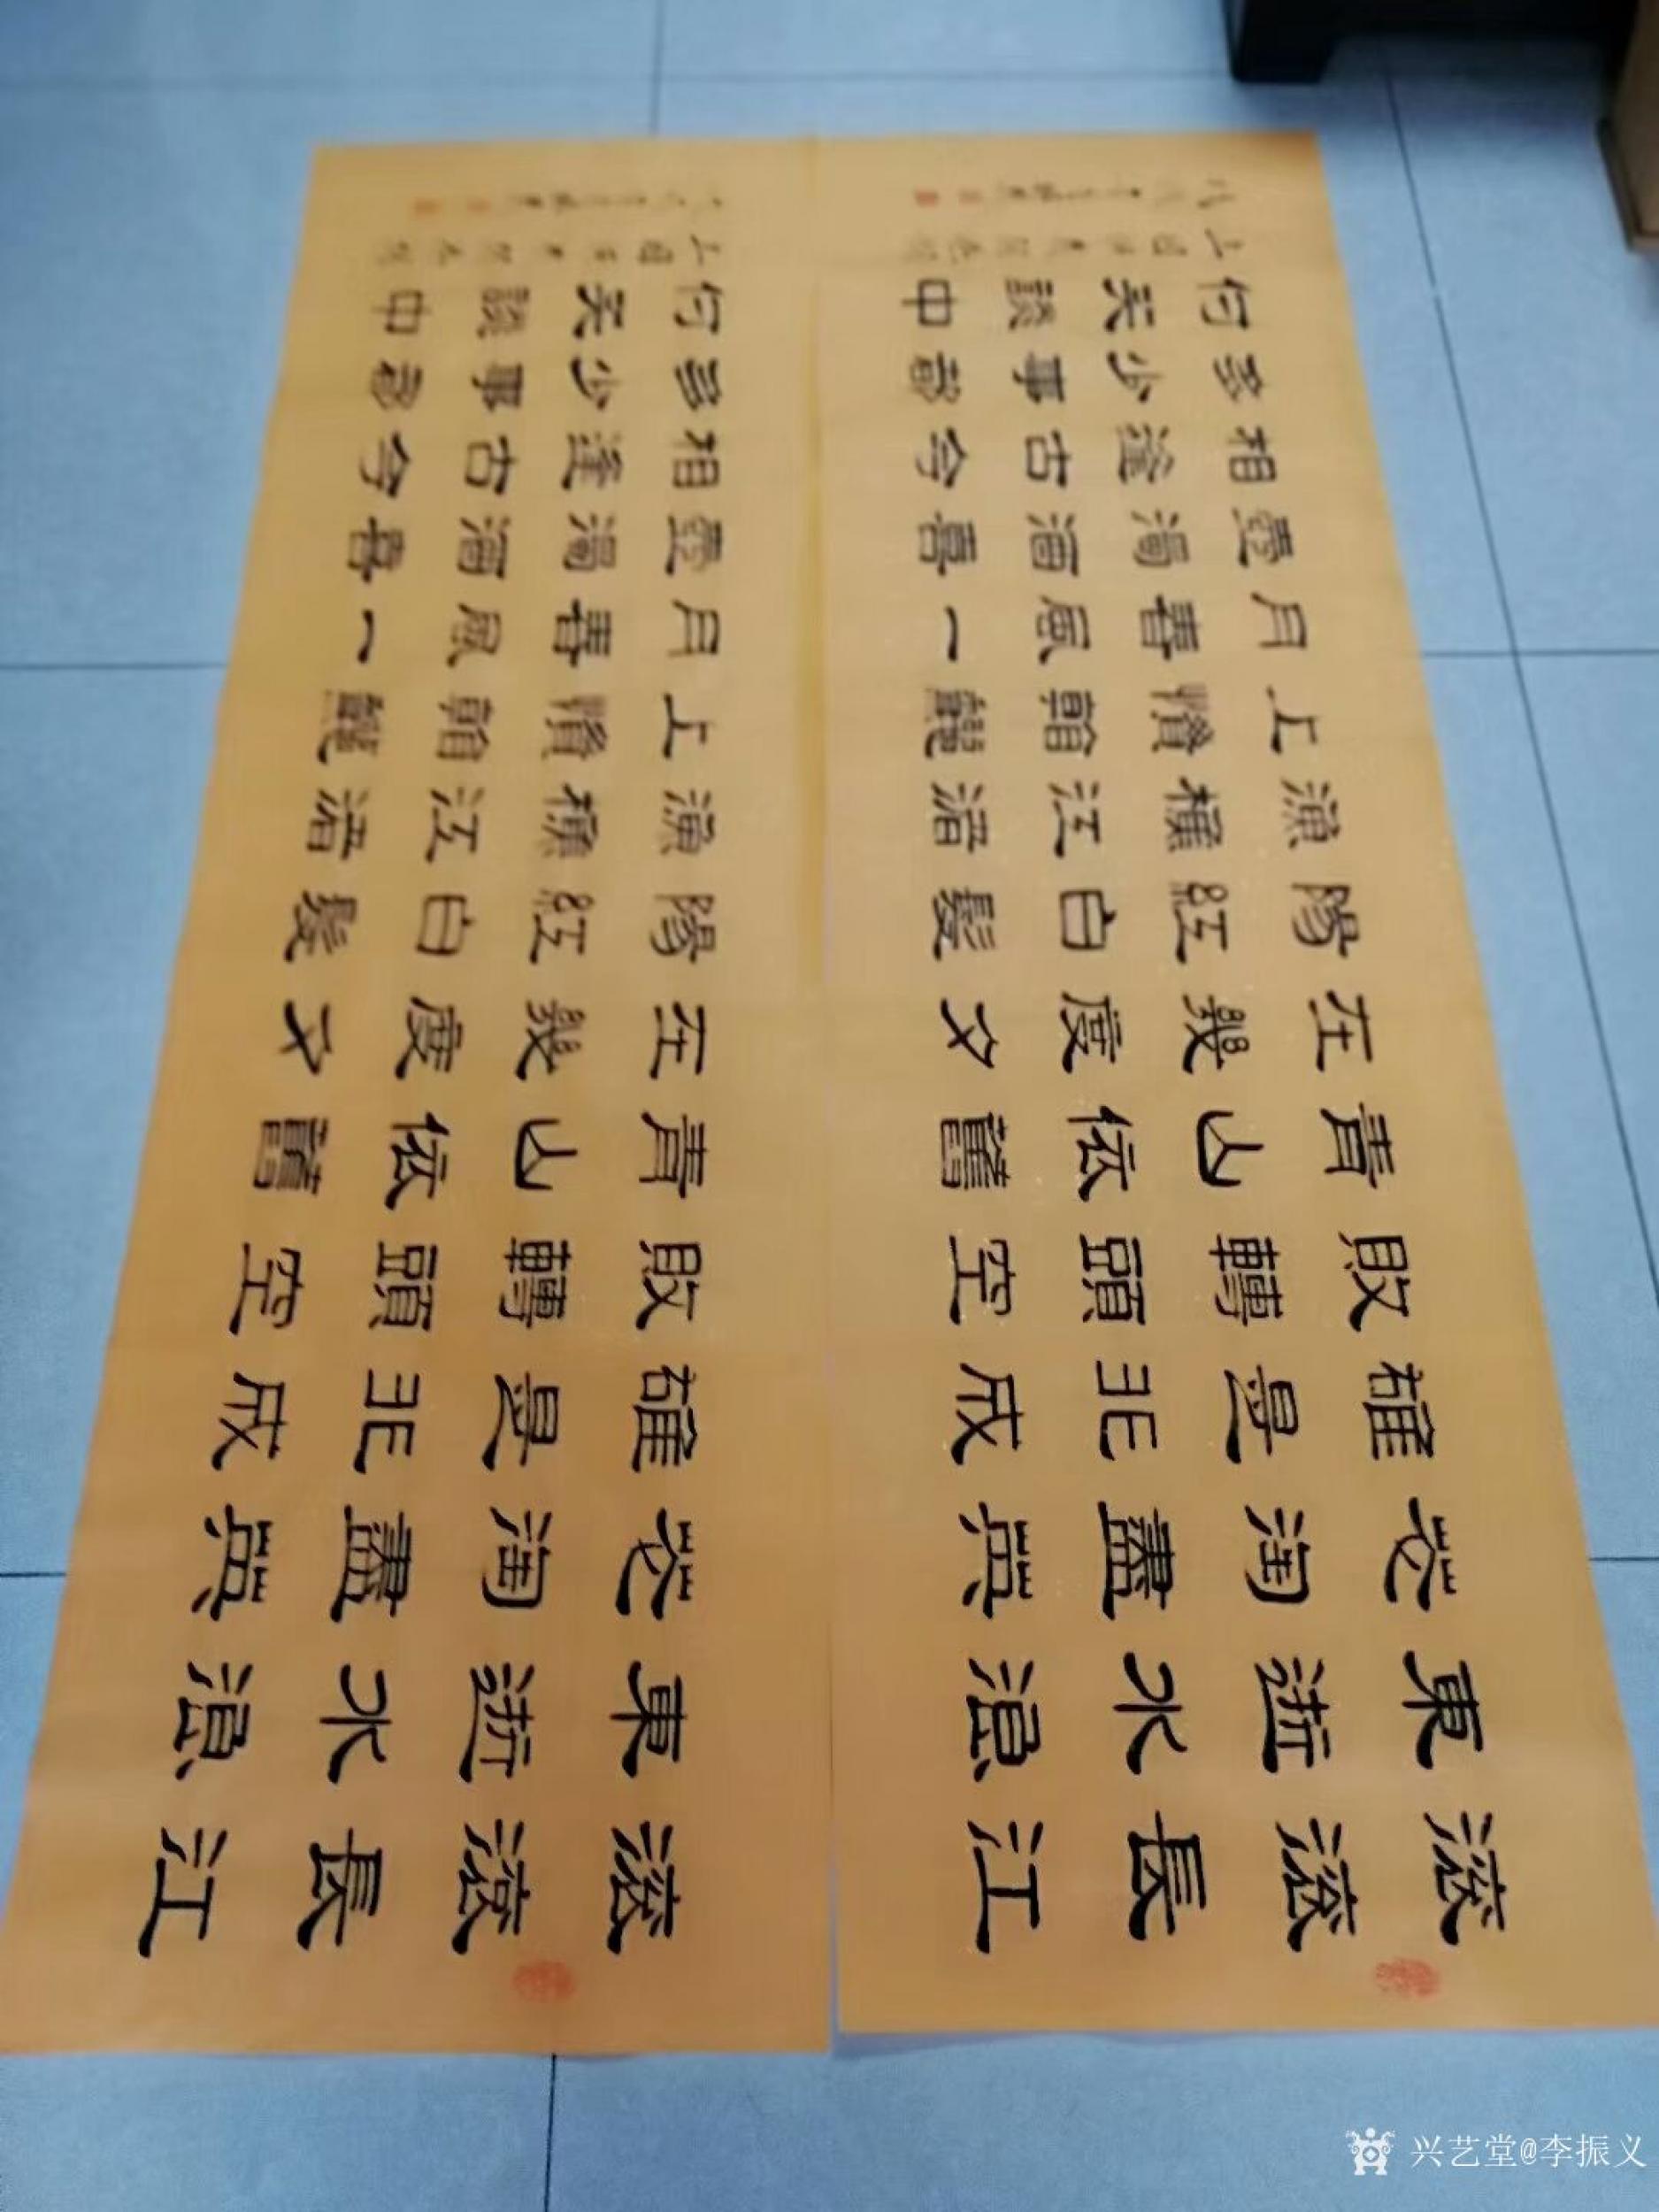 滚滚長江
東逝水浪
花淘盡英
雄是非成
敗轉頭空
青山依舊
在幾度夕
陽紅白髮
漁樵江渚
上慣看龝
月春風一
壺濁酒喜
相逢古今
多少事都
付笑談中
滚滚長江
東逝水浪
花淘盡英
雄是非成
敗轉頭空
青山依舊
在幾度夕
陽紅白髮
漁樵江渚
上慣看龝
月春風一
壺濁酒喜
相逢古今
多少事都
付笑談中
兴艺堂@李振义